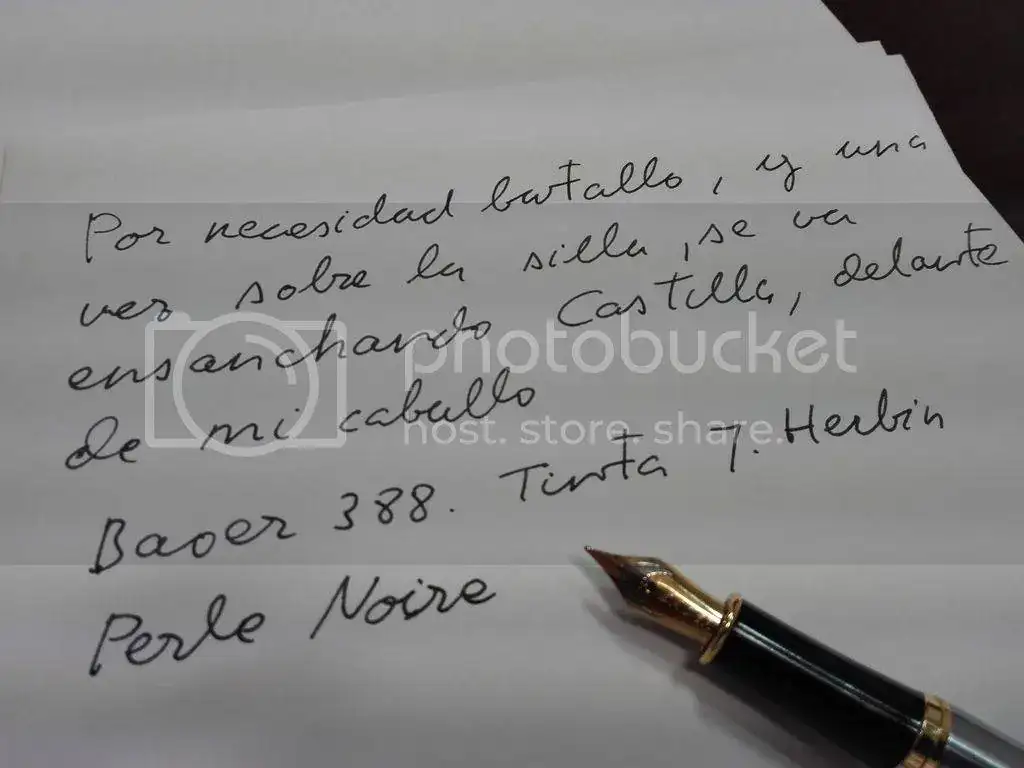 Por necesidad batallo, y una
vez sobre la silla, se va
ensanchando Castilla, delante
de mi caballo
Baoer 388. Tinta J. Herbin
Perle Noire
photobucket
host. store. share.